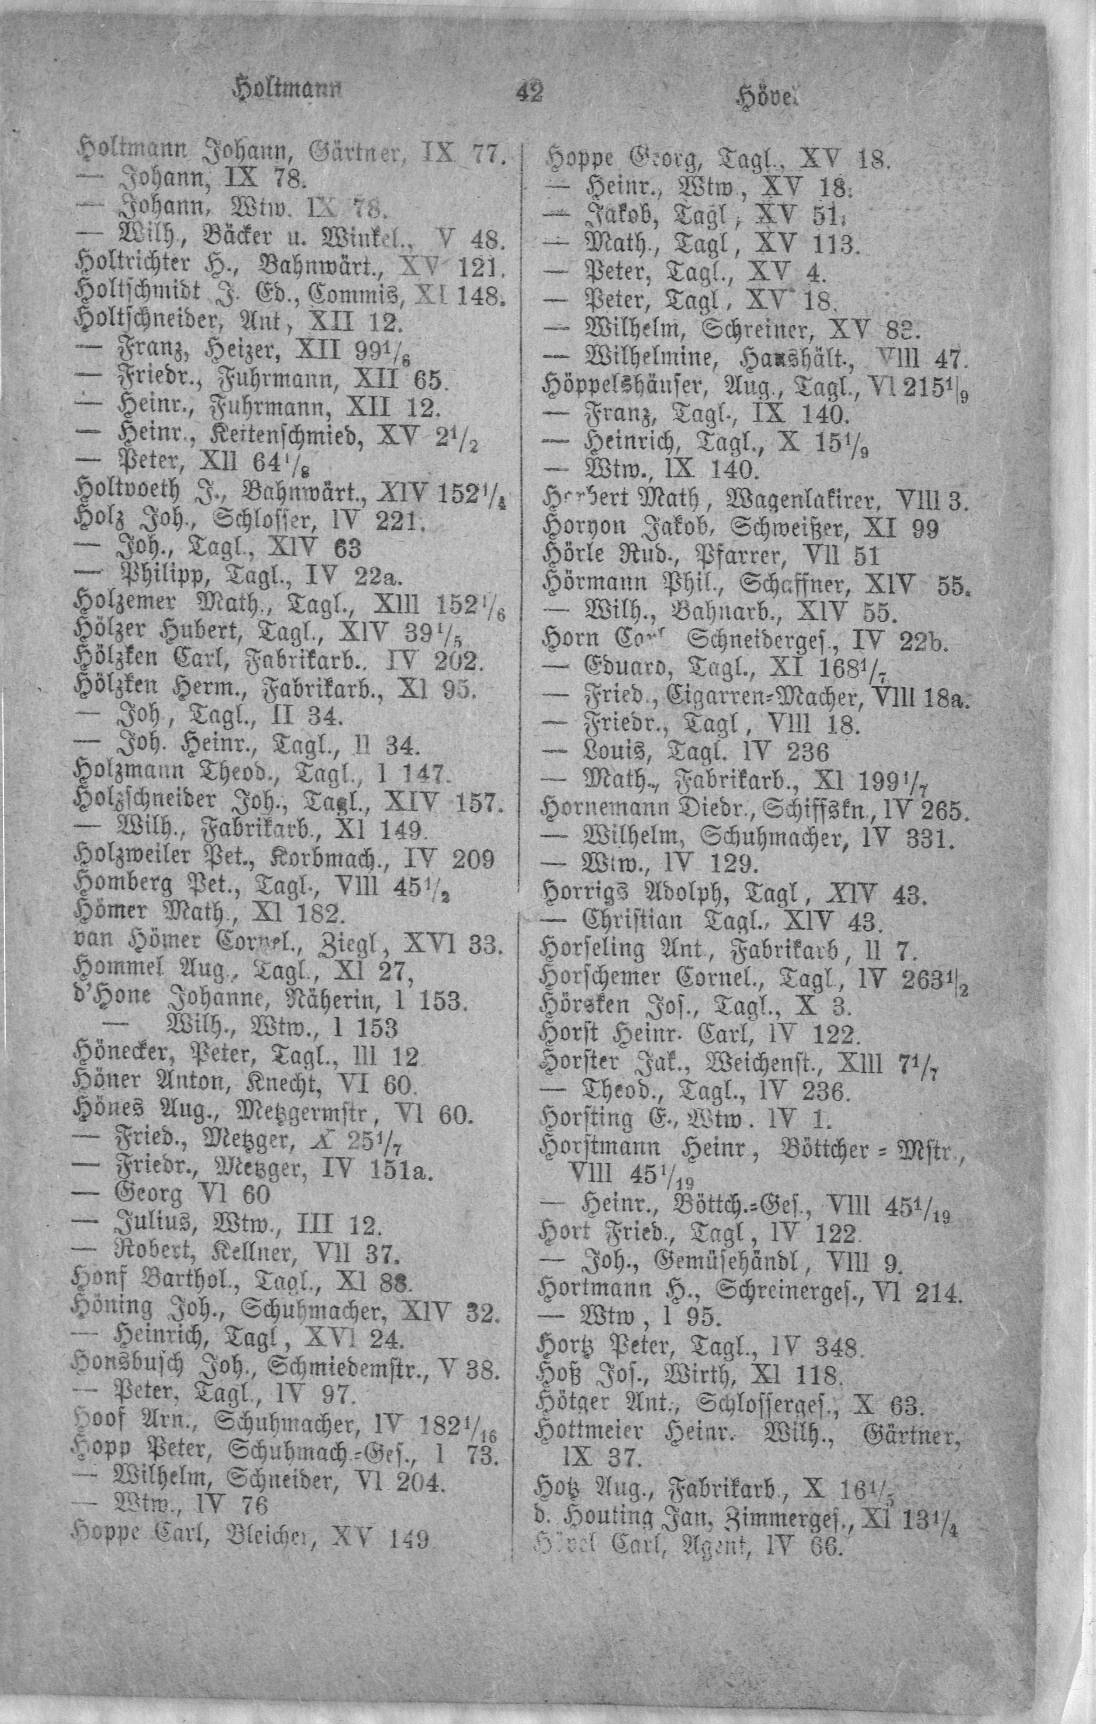 Holtmann
42
Hövel
Holtmann Johann, Gärtner, IX 77.
— Johann, IX 78.
— Johann, Wtw. IX 78.
— Wilh., Bäcker u. Winkel., V 48.
Holtrichter H., Bahnwärt., XV 121.
Holtschmidt J. Ed., Commis, XI 148.
Holtschneider, Ant, XII 12.
— Franz, Heizer, XII 99 1/8
— Friedr., Fuhrmann, XII 65.
— Heinr., Fuhrmann, XII 12.
— Heinr., Kettenschmied, XV 2 1/2
— Peter, XII 64 1/8
Holtvoeth J., Bahnwärt., XIV 152 1/4
Holz Joh., Schlosser, IV 221.
— Joh., Tagl., XIV 63
— Philipp, Tagl., IV 22a.
Holzemer Math., Tagl., XIII 152 1/6
Hölzer Hubert, Tagl., XIV 39 1/5
Hölzken Carl, Fabrikarb., IV 202.
Hölzken Herm., Fabrikarb., XI 95.
— Joh, Tagl., II 34.
— Joh. Heinr., Tagl., II 34.
Holzmann Theod., Tagl., I 147.
Holzschneider Joh., Tagl., XIV 157.
— Wilh., Fabrikarb., XI 149.
Holzweiler Pet., Korbmach., IV 209
Homberg Pet., Tagl., VIII 45 1/2
Hömer Math., XI 182.
van Hömer Cornel., Ziegl, XVI 33.
Hommel Aug., Tagl., XI 27,
d'Hone Johanne, Näherin, I 153.
— Wilh., Wtw., I 153
Hönecker, Peter, Tagl., III 12
Höner Anton, Knecht, VI 60.
Hönes Aug., Metzgermstr, VI 60.
— Fried., Metzger, X 25 1/7
— Friedr., Metzger, IV 151a.
— Georg VI 60
— Julius, Wtw., III 12.
— Robert, Kellner, VII 37.
Honf Barthol., Tagl., XI 88.
Höning Joh., Schuhmacher, XIV 32.
— Heinrich, Tagl, XVI 24.
Honsbusch Joh., Schmiedemstr., V 38.
— Peter, Tagl., IV 97.
Hoof Arn., Schuhmacher, IV 182 1/16
Hopp Peter, Schuhmach.-Ges., I 73.
— Wilhelm, Schneider, VI 204.
— Wtw., IV 76
Hoppe Carl, Bleicher, XV 149
Hoppe Georg, Tagl., XV 18.
— Heinr., Wtw, XV 18.
— Jakob, Tagl, XV 51.
— Math., Tagl, XV 113.
— Peter, Tagl., XV 4.
— Peter, Tagl, XV 18.
— Wilhelm, Schreiner, XV 82.
— Wilhelmine, Haushält., VIII 47.
Höppelshäuser, Aug., Tagl., VI 215 1/9
— Franz, Tagl., IX 140.
— Heinrich, Tagl., X 15 1/9
— Wtw., IX 140.
Herbert Math, Wagenlakirer, VIII 3.
Horyon Jakob, Schweißer, XI 99
Hörle Rud., Pfarrer, VII 51
Hörmann Phil., Schaffner, XIV 55.
— Wilh., Bahnarb., XIV 55.
Horn Carl Schneiderges., IV 22b.
— Eduard, Tagl., XI 168 1/7
— Fried., Cigarren-Macher, VIII 18a.
— Friedr., Tagl, VIII 18.
— Louis, Tagl. IV 236
— Math., Fabrikarb., XI 199 1/7
Hornemann Diedr., Schiffskn., IV 265.
— Wilhelm, Schuhmacher, IV 331.
— Wtw., IV 129.
Horrigs Adolph, Tagl, XIV 43.
— Christian Tagl., XIV 43.
Horseling Ant., Fabrikarb, II 7.
Horschemer Cornel., Tagl, IV 263 1/2
Hörsken Jos., Tagl., X 3.
Horst Heinr. Carl, IV 122.
Horster Jak., Weichenst., XIII 7 1/7
— Theod., Tagl., IV 236.
Horsting E., Wtw. IV 1.
Horstmann Heinr, Böttcher-Mstr.,
VIII 45 1/19
— Heinr., Böttch.-Ges., VIII 45 1/19
Hort Fried., Tagl, IV 122.
— Joh., Gemüsehändl, VIII 9.
Hortmann H., Schreinerges., VI 214.
— Wtw, I 95.
Hortz Peter, Tagl., IV 348.
Hoß Jos., Wirth, XI 118.
Hötger Ant., Schlosserges., X 63.
Hottmeier Heinr. Wilh., Gärtner,
IX 37.
Hotz Aug., Fabrikarb, X 16 1/5
d. Houting Jan, Zimmerges., XI 13 1/4
Hövel Carl, Agent, IV 66.